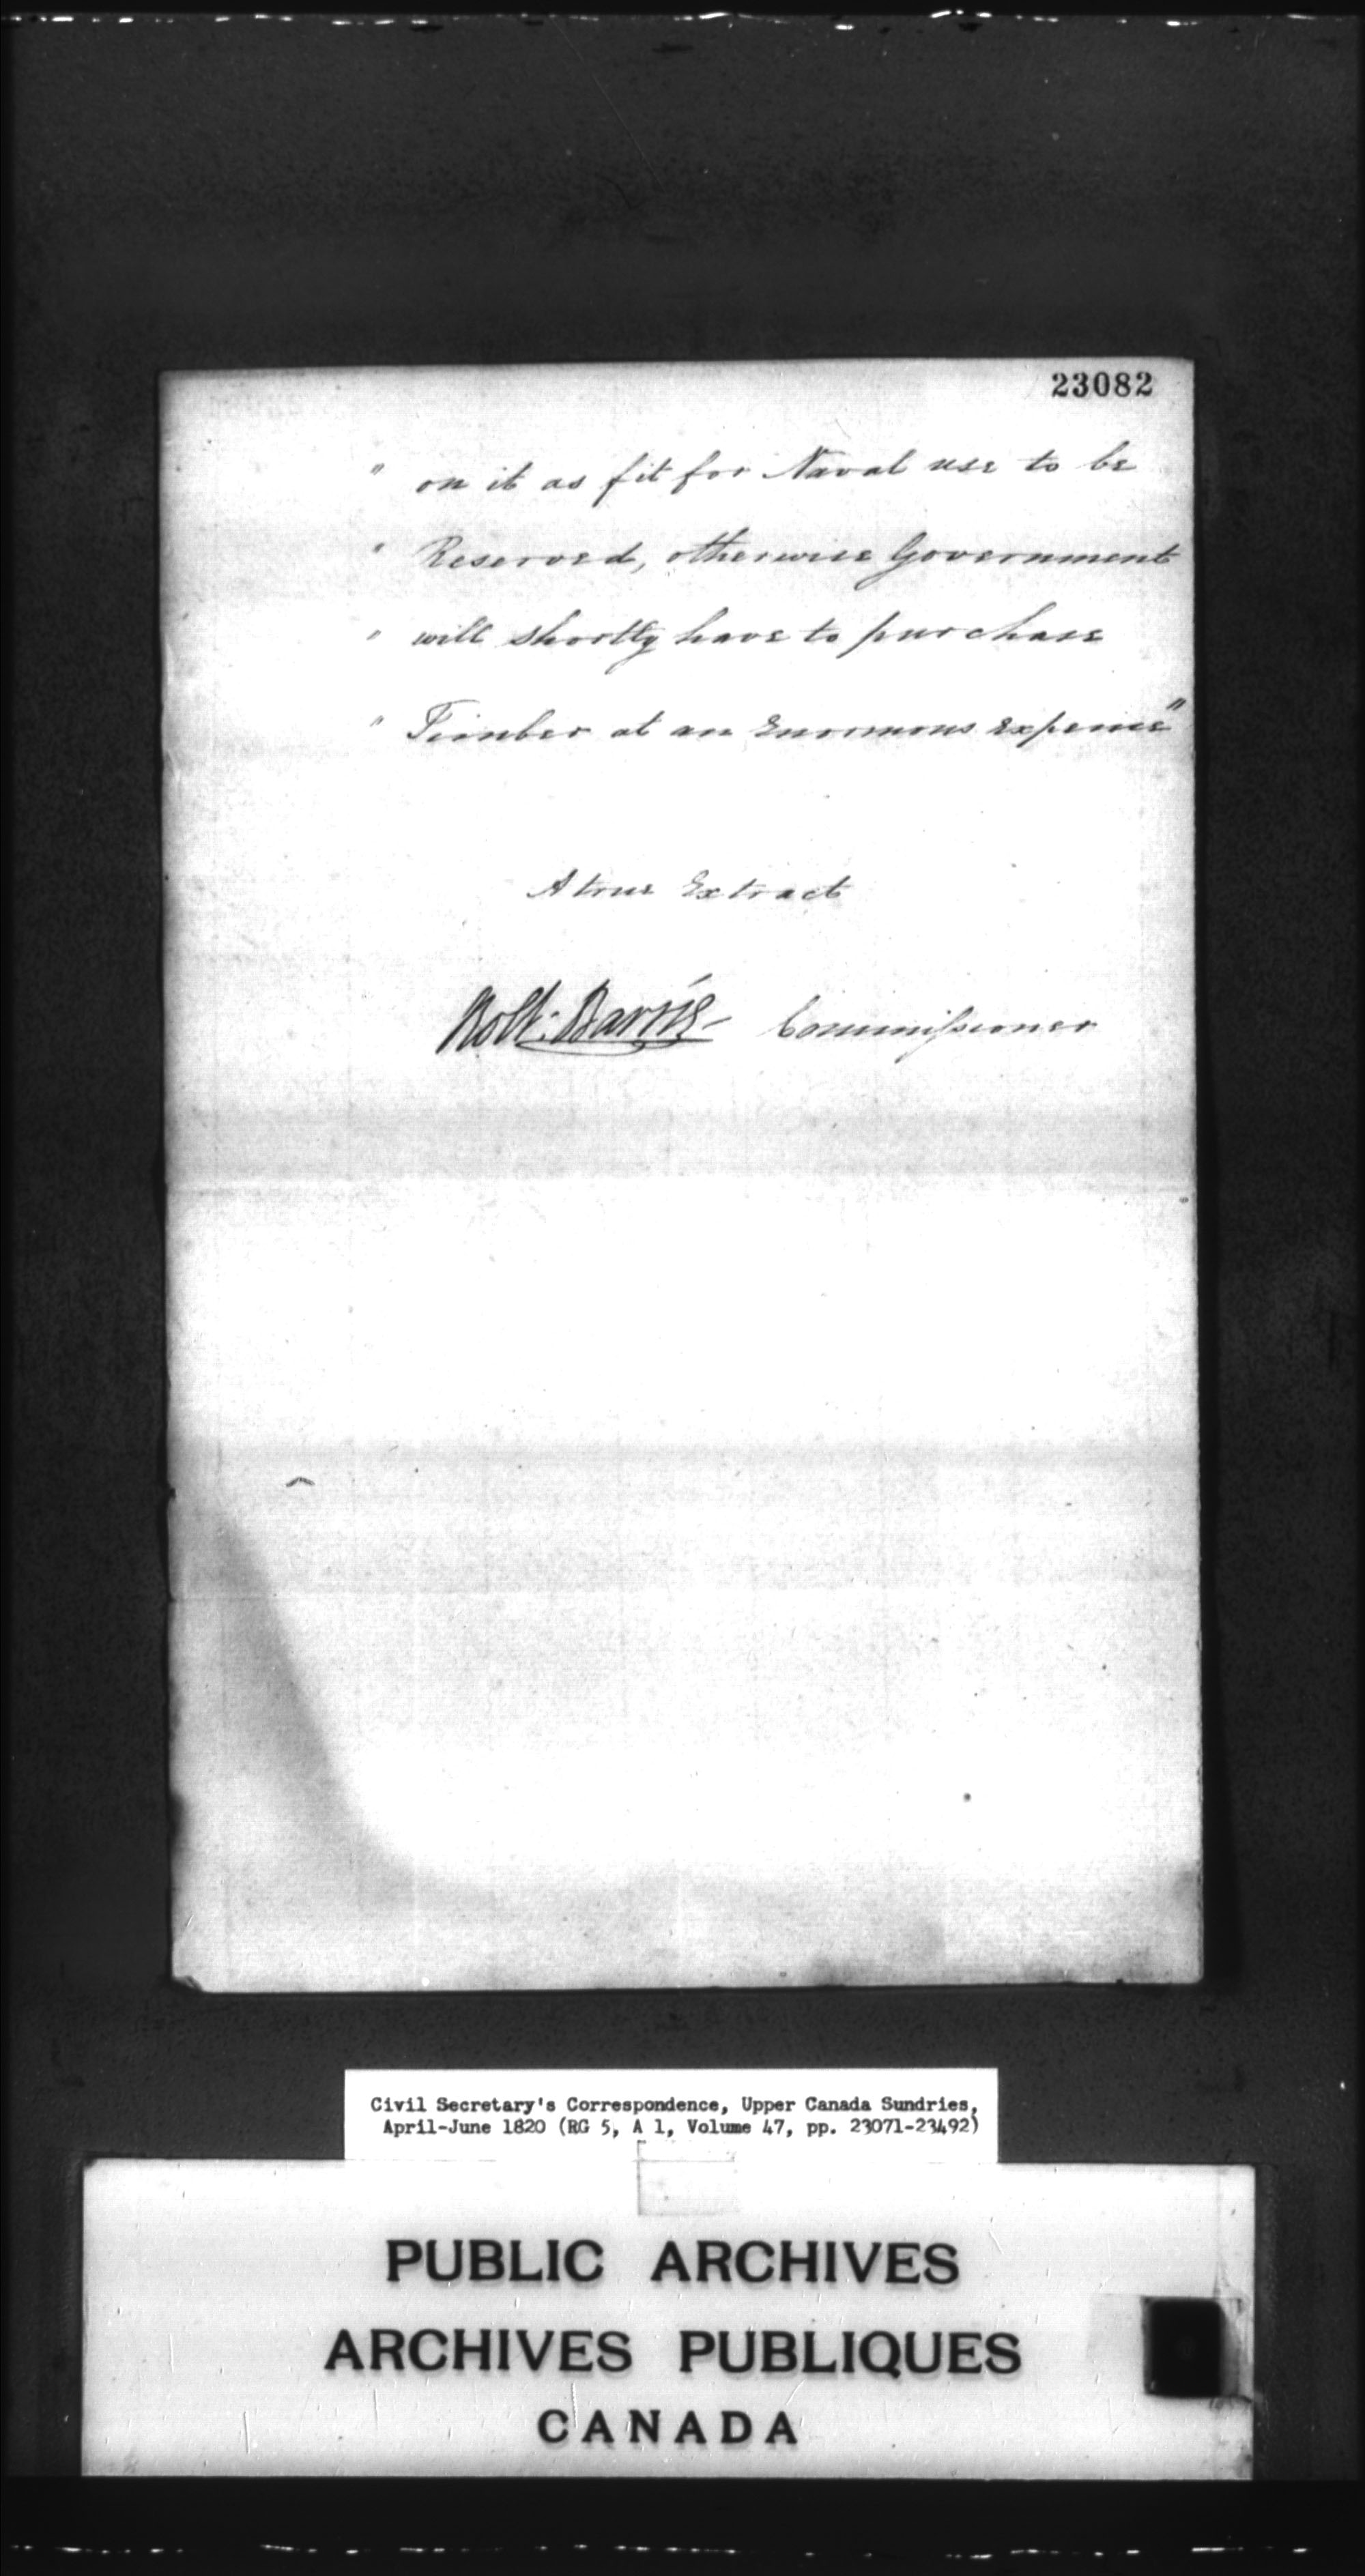 23082
" on it as fit for Naval use to be
" Reserved, otherwise Government
" will shortly have to purchase
" Timber at an Enormous Expence"
A true Extract
Robt: Barrie Commissioner
Civil Secretary's Correspondence, Upper Canada Sundries,
April-June 1820 (RG 5, A 1, Volume 47, pp. 23071-23492)
PUBLIC ARCHIVES
ARCHIVES PUBLIQUES
CANADA